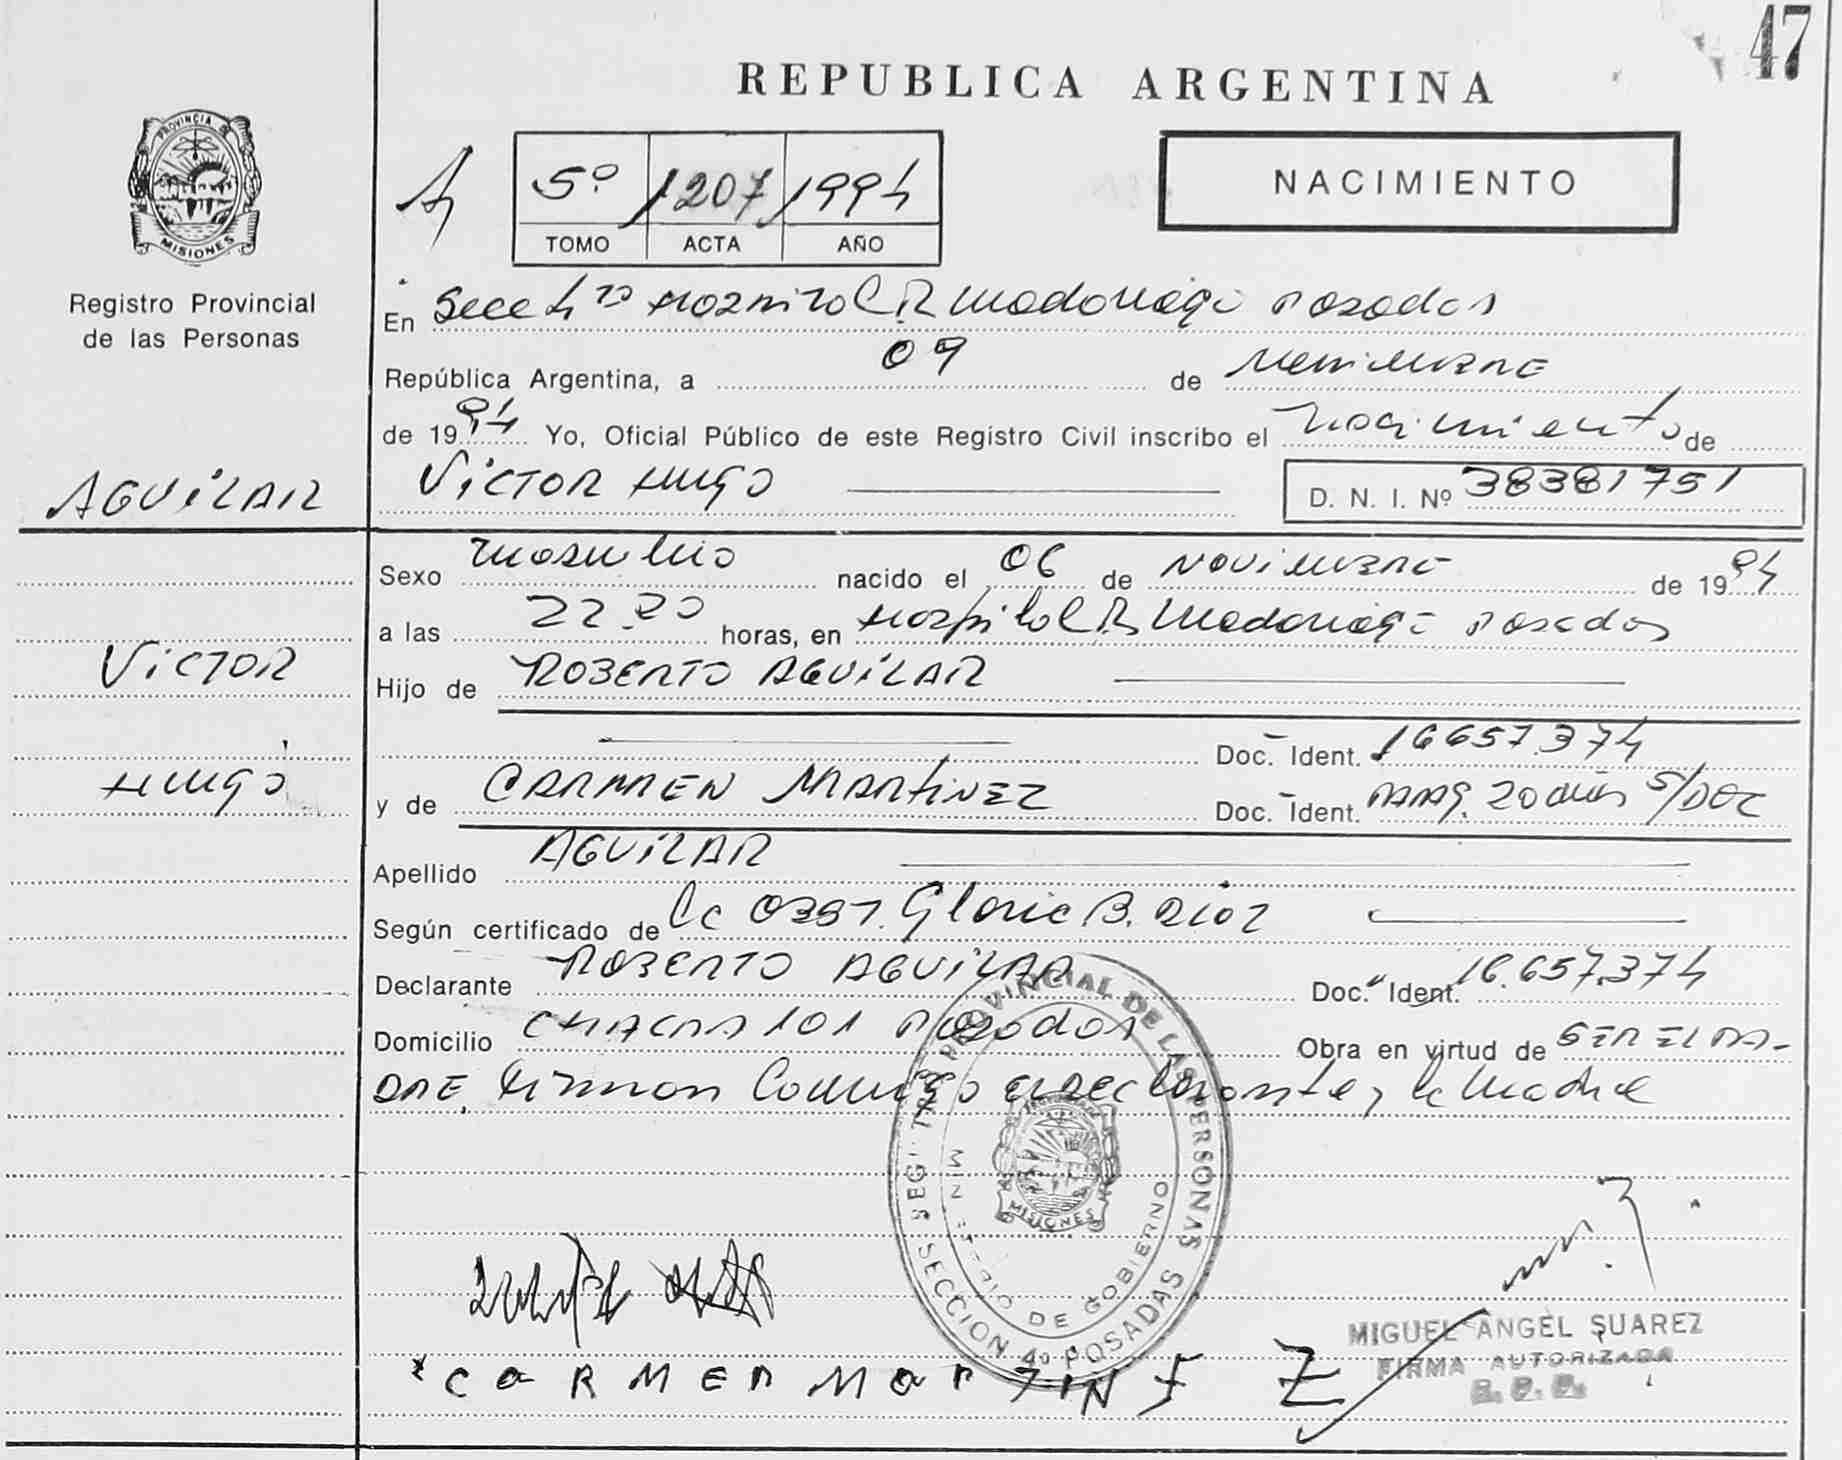 47
REPUBLICA ARGENTINA
PROVINCIA DE
MISIONES
Registro Provincial
de las Personas
5º 1207 1994
TOMO ACTA AÑO
NACIMIENTO
En Secc 4ta Hospital R Madariaga Posadas
República Argentina, a 09 de Noviembre
de 1994 Yo, Oficial Público de este Registro Civil inscribo el Nacimiento de
AGUILAR
VICTOR HUGO
D. N. I. Nº 38381751
Sexo Masculino nacido el 06 de Noviembre de 1994
a las 22 horas, en Hospital R. Madariaga Posadas
VICTOR
Hijo de ROBERTO AGUILAR
Doc. Ident. 16657.374
HUGO
y de CARMEN MARTINEZ Doc. Ident. PARAG. 20 años S/DOC
Apellido AGUILAR
Según certificado de la OBST. Gloria B.
Declarante ROBERTO AGUILAR Doc. Ident. 16.657.374
Domicilio CHACRA 101 Posadas Obra en virtud de SER EL PA-
DRE. Firman Conmigo el declarante y la Madre
REGISTRO PROVINCIAL DE LAS PERSONAS
SECCION 4º POSADAS
MINISTERIO DE GOBIERNO
MISIONES
MIGUEL ANGEL SUAREZ
FIRMA AUTORIZADA
CARMEN MARTINEZ